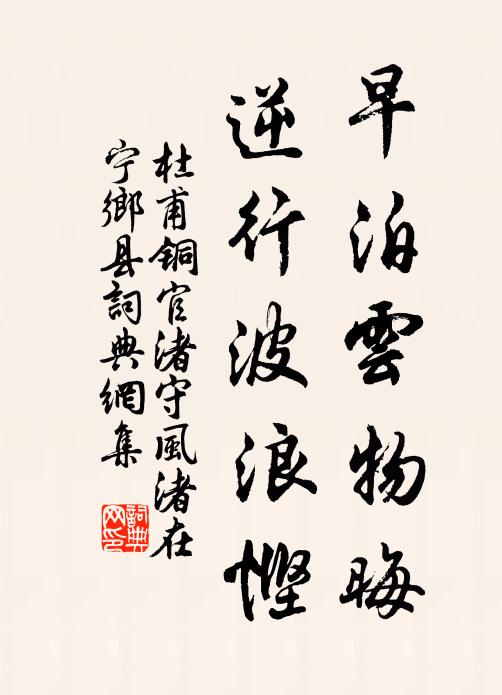 早泊雲物晦
逆行波浪慳
杜甫銅官渚守風渚在
宁鄉县詞典網集
詞典
网印